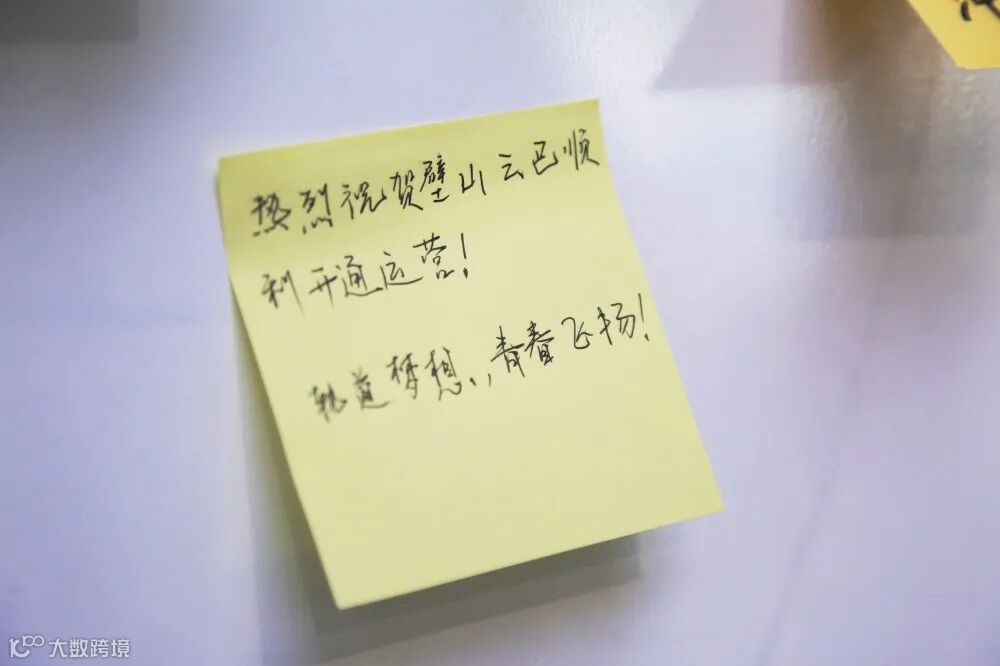 热烈祝贺璧山云巴顺
利开通运营！
轨道梦想，青春飞扬！
大数跨境